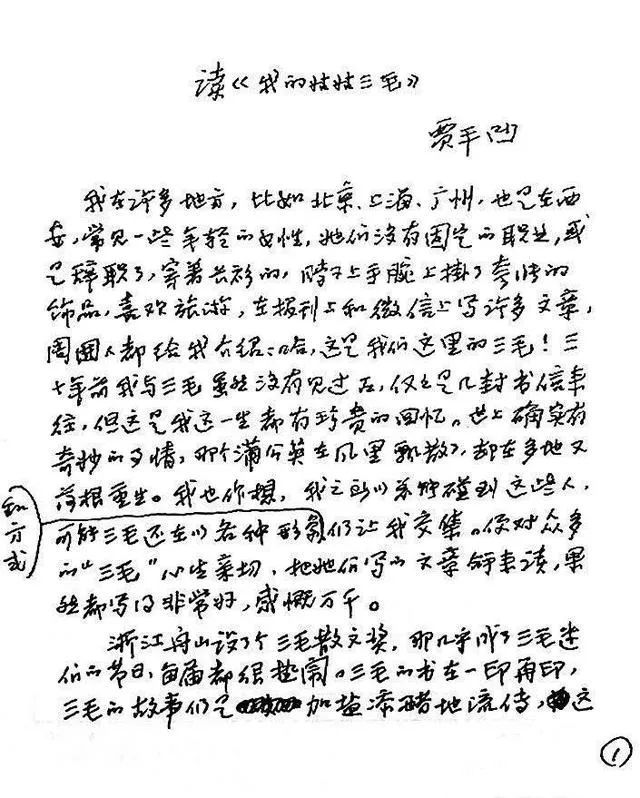 读《我的娃娃三毛》
贾平凹
我在许多地方，比如北京、上海、广州，也是在西
安，常见一些年轻的女性，她们没有固定的职业，或
是辞职了，穿着长衫的，脖子上手腕上掛了夸张的
饰品，喜欢旅游，在报刊上和微信上写许多文章，
周围人都给我介绍：哈，这是我们这里的三毛！三
十年前我与三毛虽然没有见过面，仅仅是几封书信来
往，但这是我这一生都有珍贵的回忆。世上确实有
奇妙的事情，那个蒲公英在风里飘散了，却在多地又
落根重生。我也作想，我之所以能碰到这些人，
可能三毛还在以各种形象仍让我交集。便对众多
和方式
的“三毛”心生亲切，把她们写的文章拿来读，果
然都写得非常好，感慨万千。
浙江舟山设了个三毛散文奖，那几乎成了三毛迷
们的节日，每届都很热闹。三毛的书在一印再印，
三毛的故事仍是加盐添醋地流传，这
1